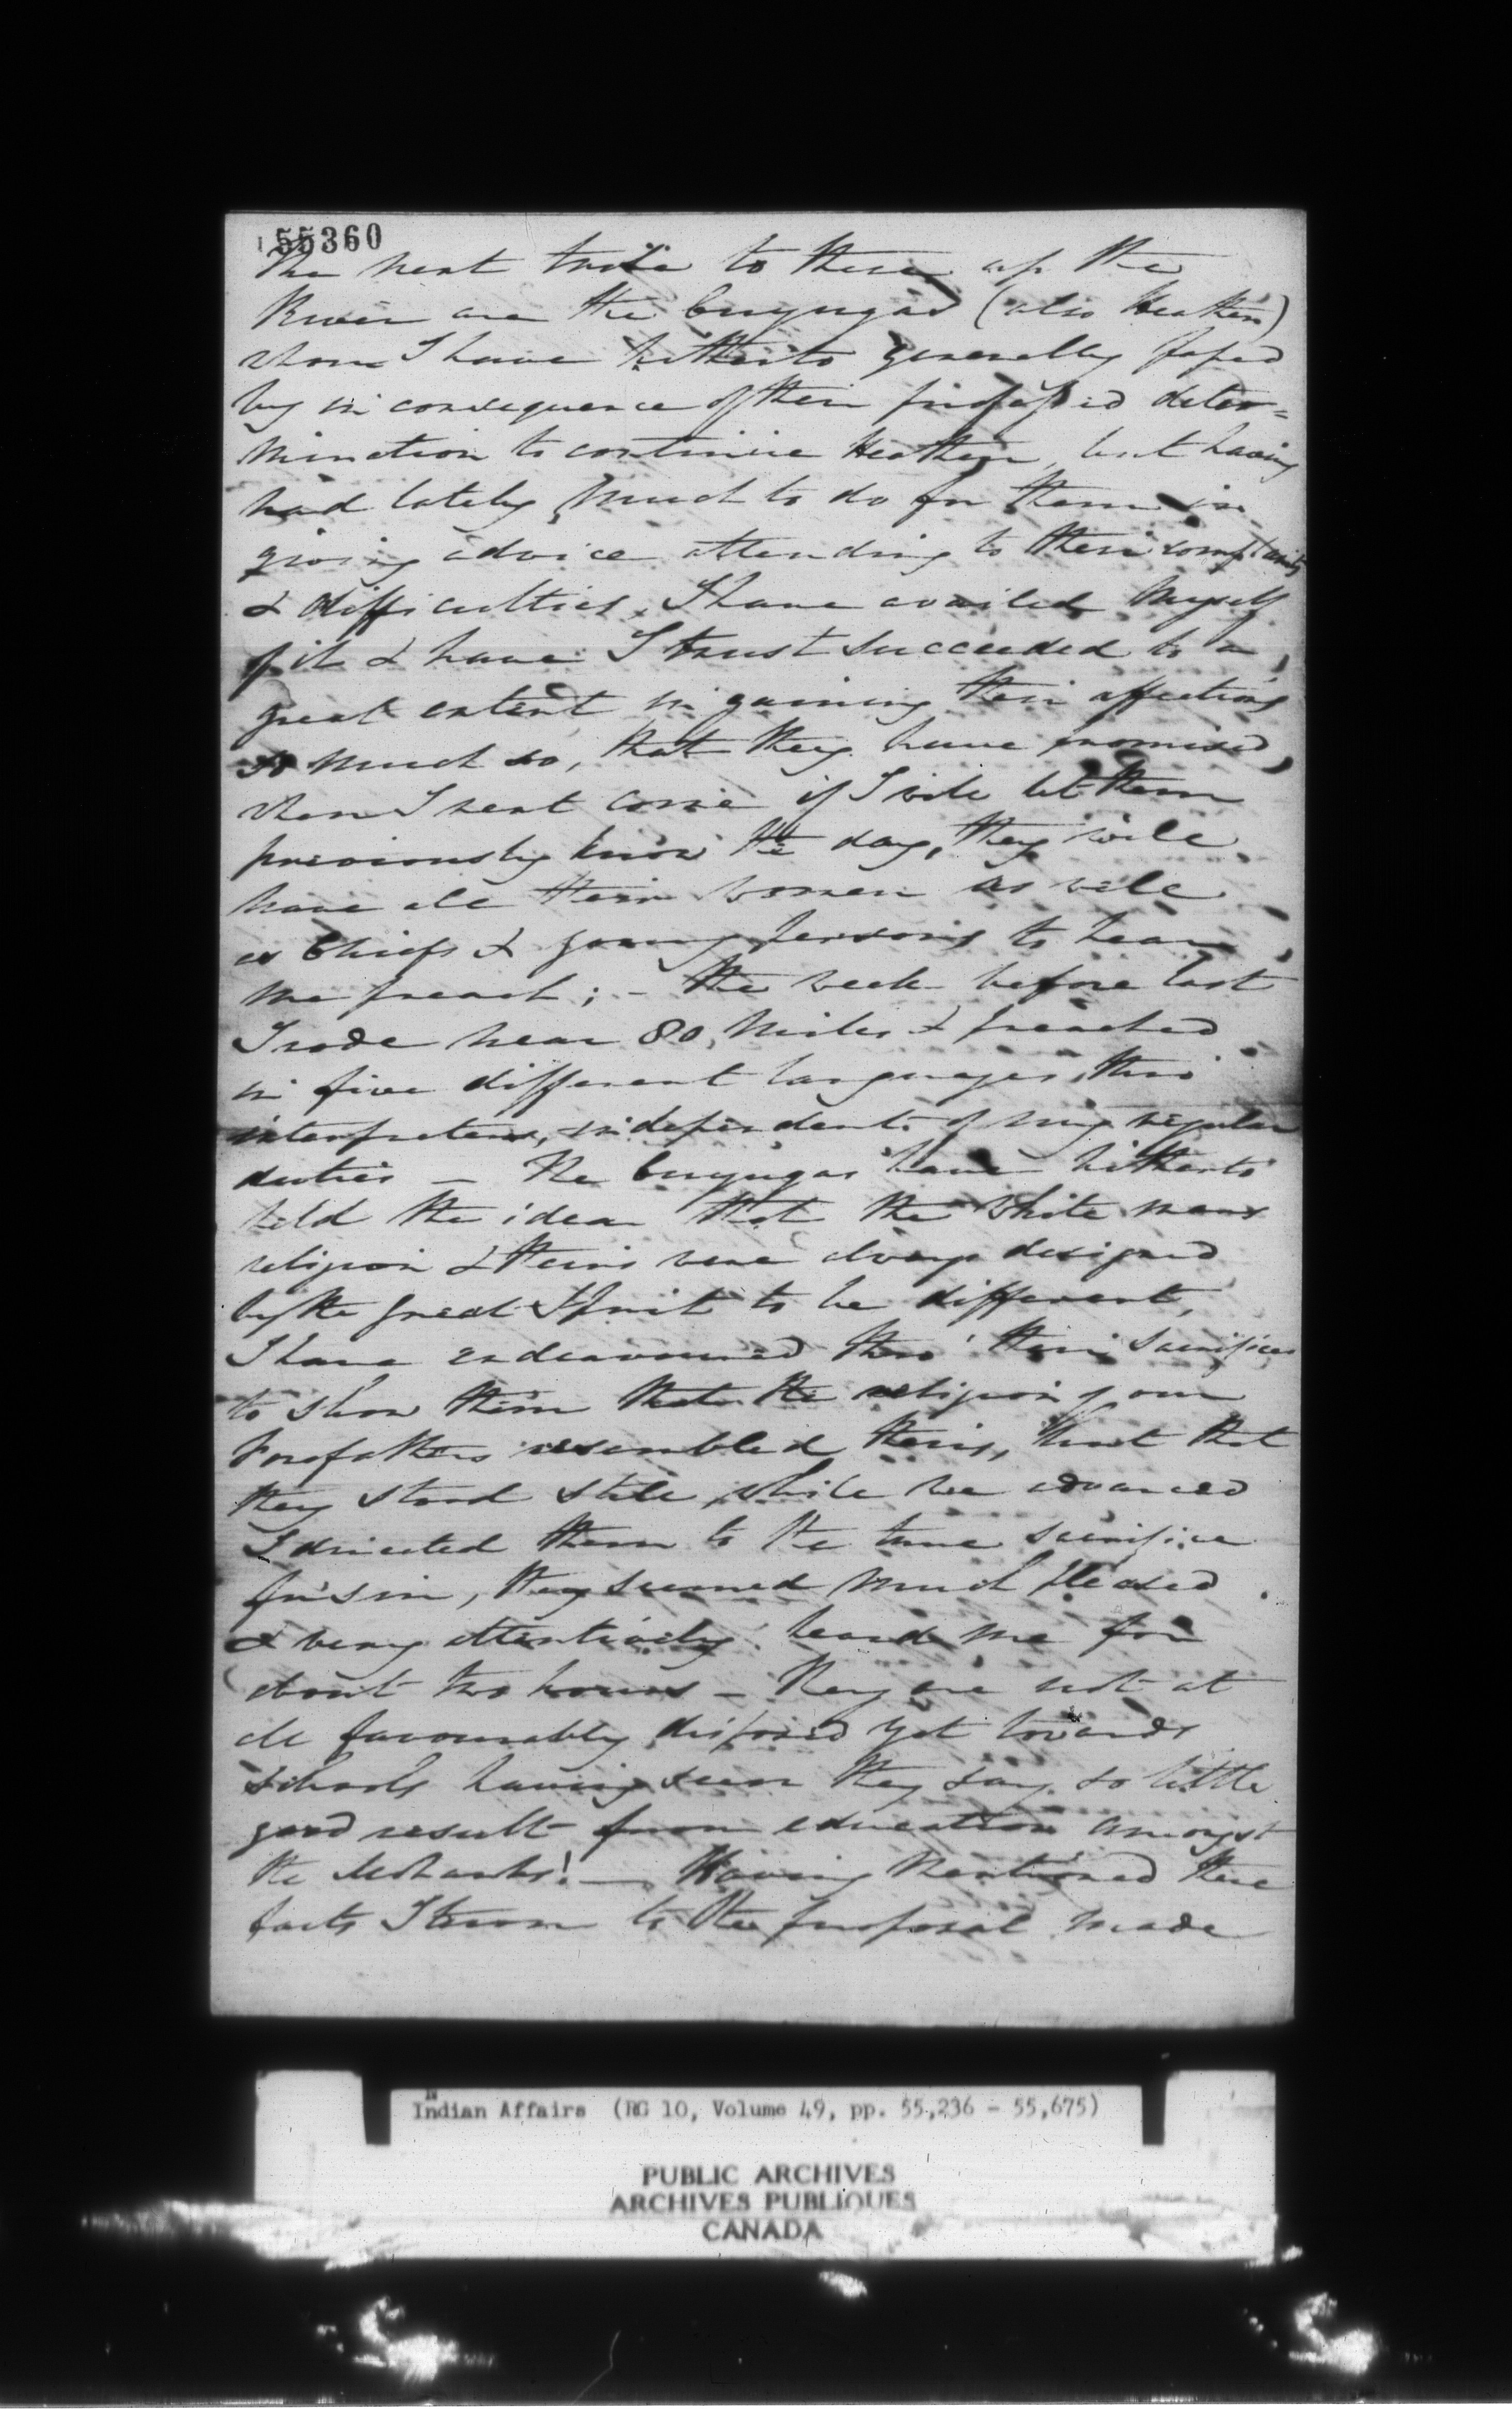 55360
The next tribe to these up the
River are the Cuyugas (also Heathen)
whom I have hitherto generally passed
by in consequence of their professed deter=
mination to continue Heathen, but having
had lately much to do for them in
giving advice attending to their complaints
& difficulties, I have availed myself
of it & have I trust succeeded to a
great extent in gaining their affections
so much so, that they have promised,
when I next come if I will let them
previously know the day, they will
have all their women as well
as Chiefs & young persons to hear
me preach; – The week before last
I rode near 80, miles & preached
in five different languages, thro'
interpreters, independent of my regular
duties – The Cuyugas have hitherto
held the idea that the White mans
religion & theirs were always designed
by the great Spirit to be different,
I have endeavoured thro' their Sacrifices
to show them that the religion of our
Forefathers resembled theirs, but that
they stood still, while we advanced
I directed them to the true sacrifice
for sin, they seemed much pleased
& very attentively heard me for
about two hours – They are not at
all favourably disposed yet towards
schools having seen they say so little
good result from education amongst
the Mohawks! – Having mentioned these
facts I turn to the proposal made
Indian Affairs (RG 10, Volume 49, pp. 55,236 - 55,675)
PUBLIC ARCHIVES
ARCHIVES PUBLIQUES
CANADA